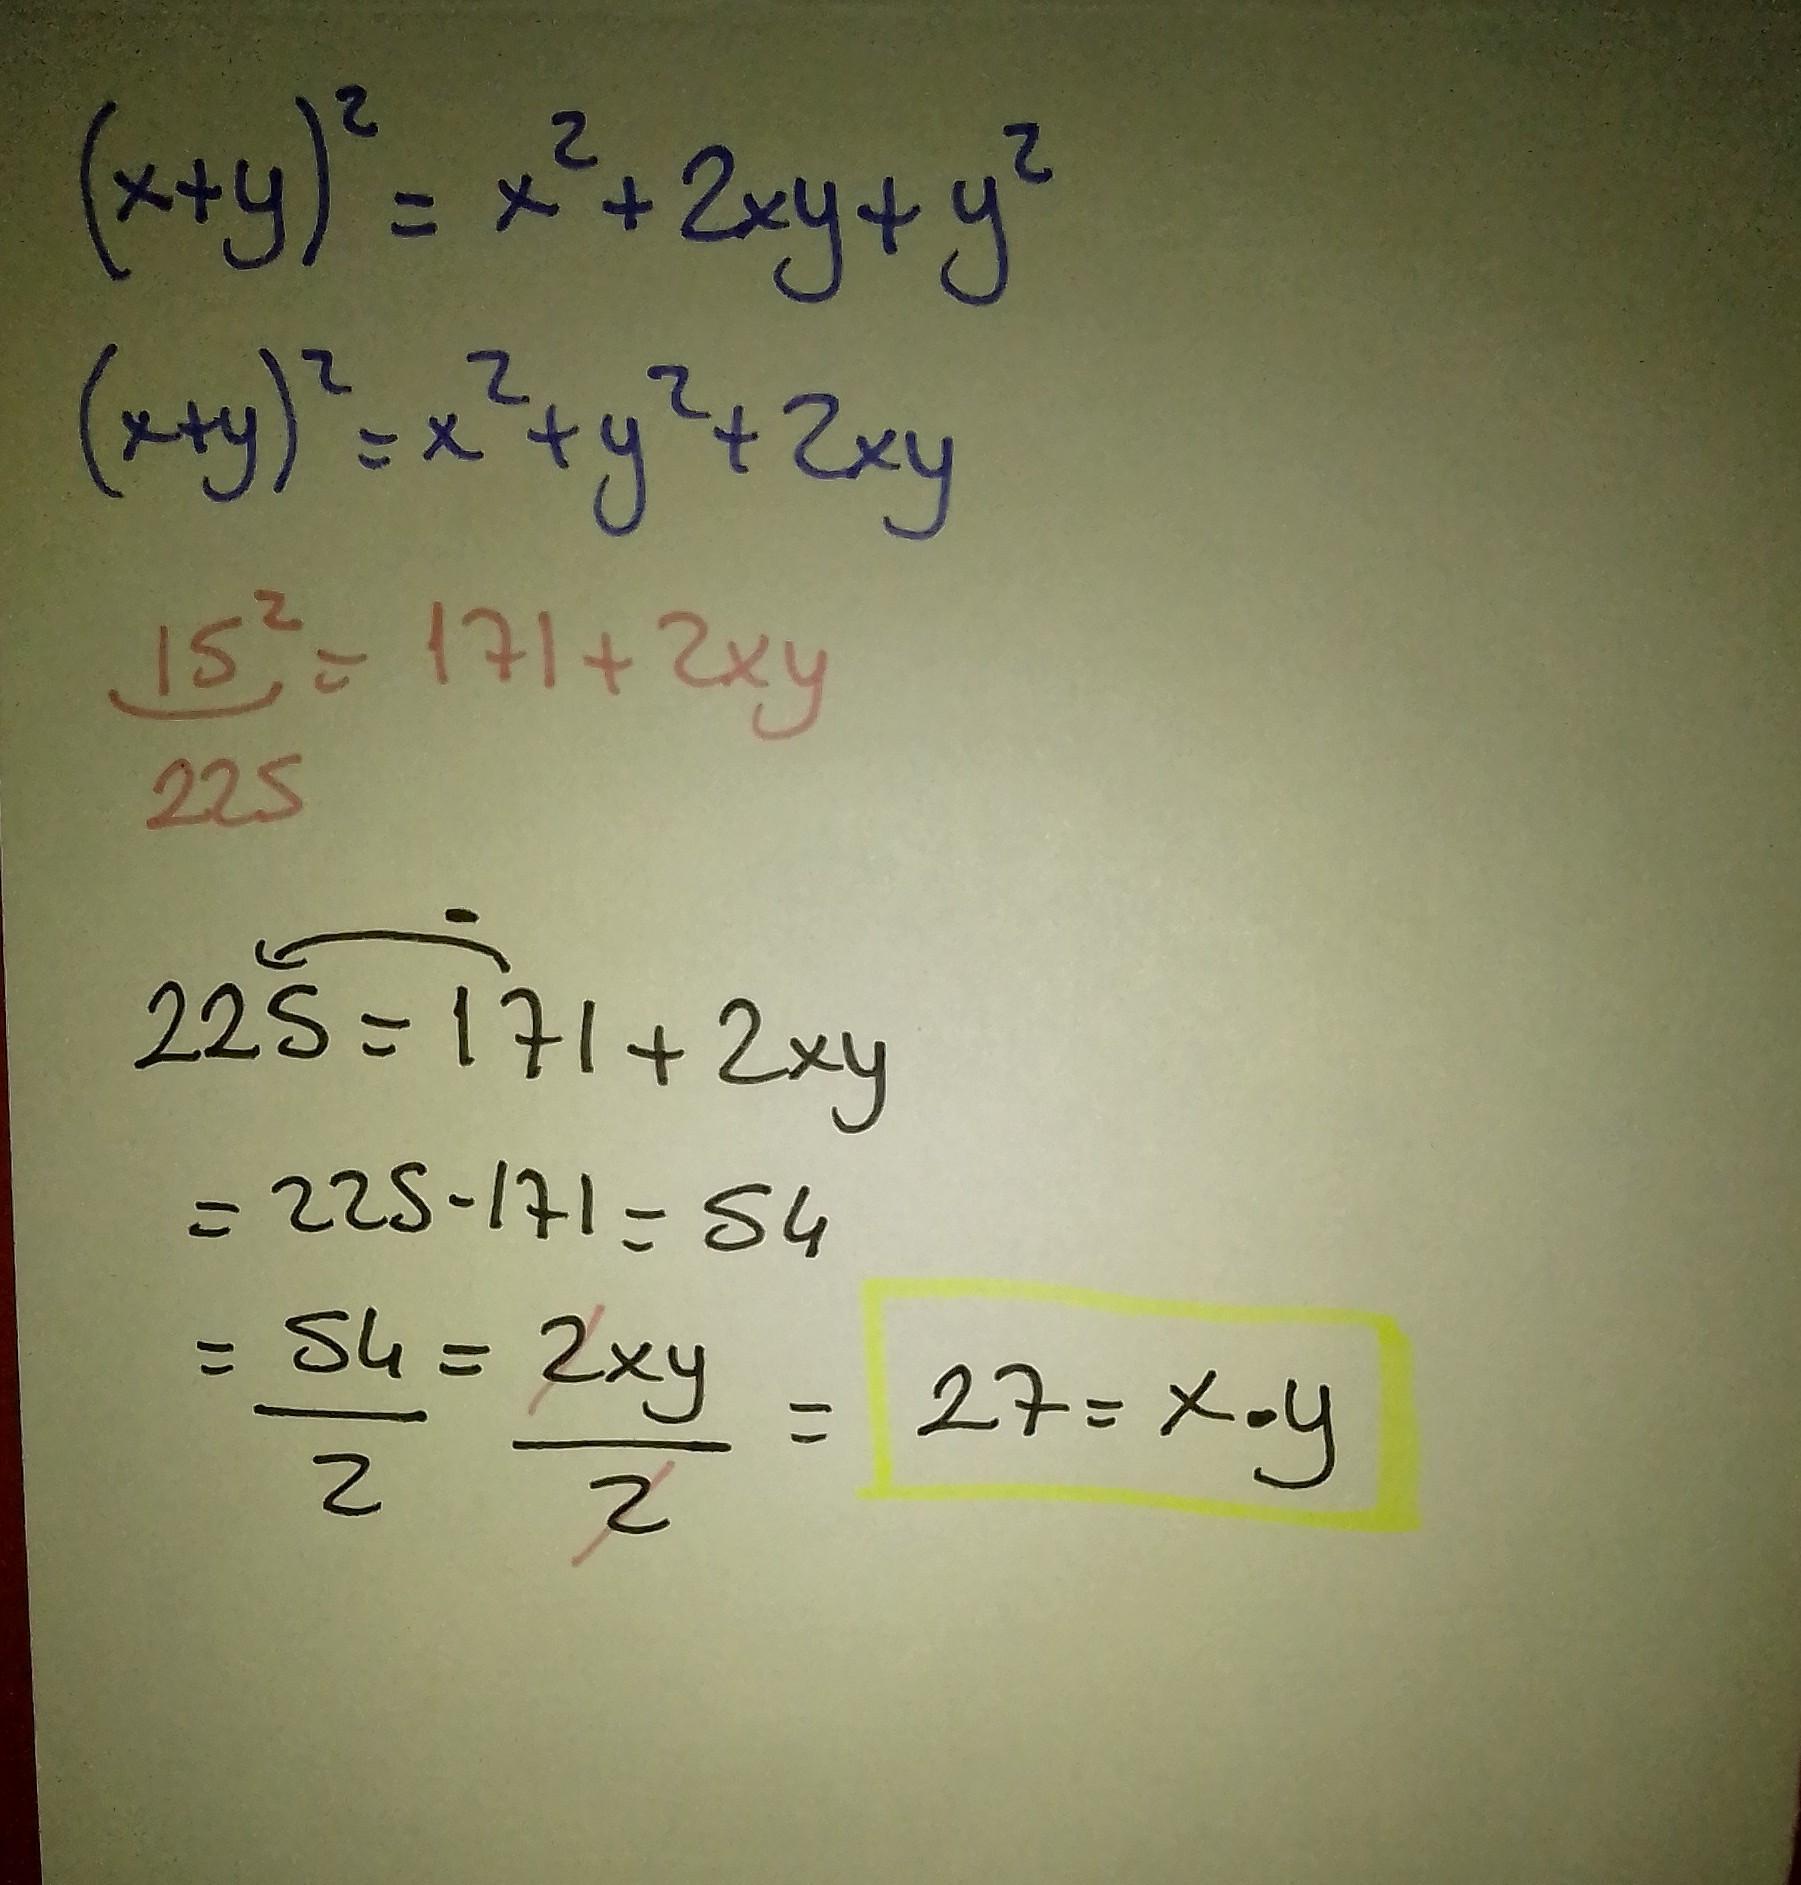 (x+y)² = x²+2xy+y²
(x+y)²=x²+y²+2xy
15² = 171+2xy
225
-
225=171+2xy
= 225-171=54
= 54/2 = 2xy/2 = 27=x·y